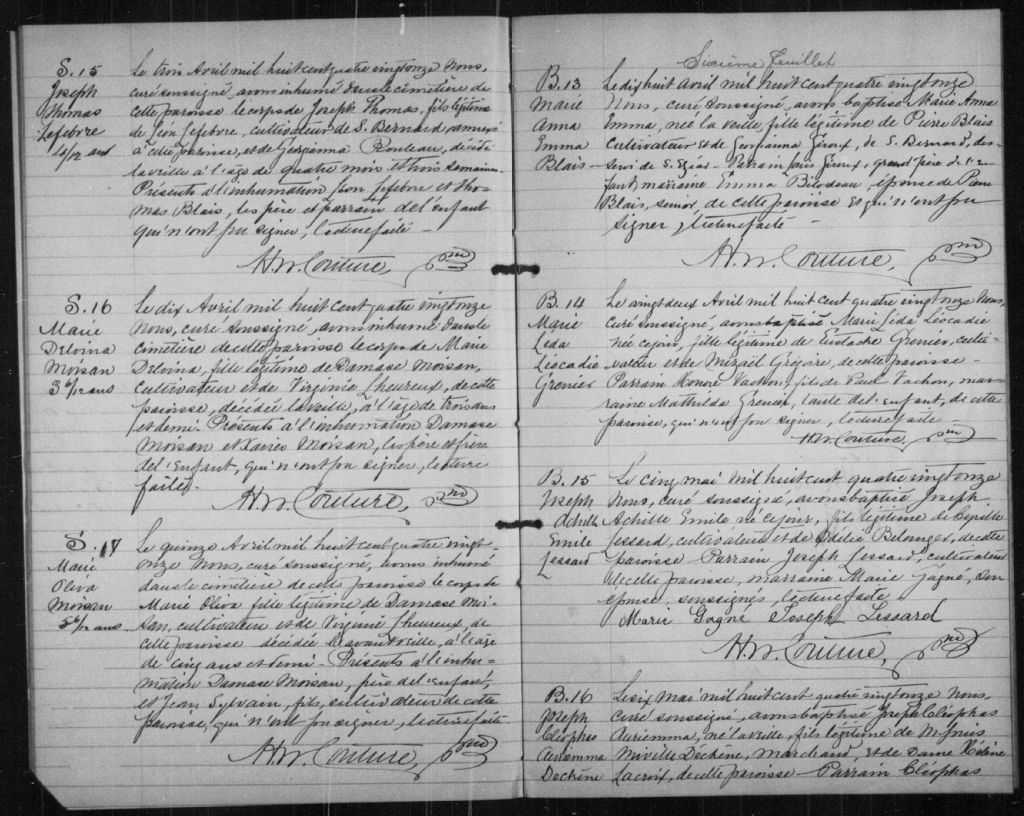 S. 15
Joseph
Thomas
Lefebvre
4/12 ans
Le trois Avril mil huit cent quatre vingt onze, Nous,
curé soussigné, avons inhumé dans le cimetière de
cette paroisse le corps de Joseph Thomas, fils légitime
de Léon Lefebvre, cultivateur de S. Bernard,
à cette paroisse, et de Georgianna Rouleau, décédé
la veille à l'âge de quatre mois et trois semaines.
Présents à l'inhumation Léon Lefebvre et Tho-
mas Blais, les père et parrain de l'enfant
qui n'ont pu signer, lecture faite -
H. N. Couture, ptre
S. 16
Marie
Delvina
Moisan
3 6/12 ans
Le dix Avril mil huit cent quatre vingt onze
Nous, curé soussigné, avons inhumé dans le
cimetière de cette paroisse le corps de Marie
Delvina, fille légitime de Damase Moisan,
cultivateur et de Virginie Lheureux, de cette
paroisse, décédée la veille, à l'âge de trois ans
et demi. Présents à l'inhumation Damase
Moisan et Xavier Moisan, les père et frère
de l'Enfant, qui n'ont pu signer, lecture
faite.
H. N. Couture, ptre
S. 17
Marie
Oliva
Moisan
5 6/12 ans
Le quinze Avril mil huit cent quatre vingt-
onze Nous, curé soussigné, avons inhumé
dans le cimetière de cette paroisse le corps de
Marie Oliva fille légitime de Damase Moi-
san, cultivateur et de Virginie Lheureux, de
cette paroisse décédée l'avant veille, à l'âge
de cinq ans et demi - Présents à l'inhu-
mation Damase Moisan, père de l'enfant,
et Jean Sylvain, fils, cultivateur de cette
paroisse, qui n'ont pu signer, lecture faite
H. N. Couture, ptre
Sixième feuillet
B. 13
Marie
Anna
Emma
Blais
Le dix huit Avril mil huit cent quatre vingt onze
Nous, curé soussigné, avons baptisé Marie Anna
Emma, née la veille, fille légitime de Pierre Blais
cultivateur et de Georgianna Giroux, de S. Bernard, des-
servi de S. Elzéar - Parrain Louis Giroux, grand père de l'en-
fant, marraine Emma Bilodeau, épouse de Pierre
Blais, senior de cette paroisse et qui n'ont pu
signer, lecture faite -
H. N. Couture, ptre
B. 14
Marie
Léda
Léocadie
Grenier
Le vingt deux Avril mil huit cent quatre vingt onze Nous,
curé soussigné, avons baptisé Marie Léda Léocadie
née ce jour, fille légitime de Eustache Grenier, culti-
vateur et de Mizaël Grégoire, de cette paroisse -
Parrain Honoré Vachon, fils de Paul Vachon, mar-
raine Mathilda Grenier, tante de l'enfant, de cette
paroisse, qui n'ont pu signer, lecture faite
H. N. Couture, ptre
B. 15
Joseph
Achille
Emile
Lessard
Le cinq mai mil huit cent quatre vingt onze
Nous, curé soussigné, avons baptisé Joseph
Achille Emile né ce jour, fils légitime de
Lessard, cultivateur et de Odélie Belanger, de cette
paroisse Parrain Joseph Lessard, cultivateur
de cette paroisse, marraine Marie Gagné, son
épouse, soussignés, lecture faite
Marie Gagné Joseph Lessard
H. N. Couture, ptre
B. 16
Joseph
Cléophas
Auriemma
Dechêne
Le six mai mil huit cent quatre vingt onze Nous,
curé soussigné, avons baptisé Joseph Cléophas
Auriemma, né la veille, fils légitime de
Miville Dechêne, marchand et de Dame
Lacroix, de cette paroisse - Parrain Cléophas